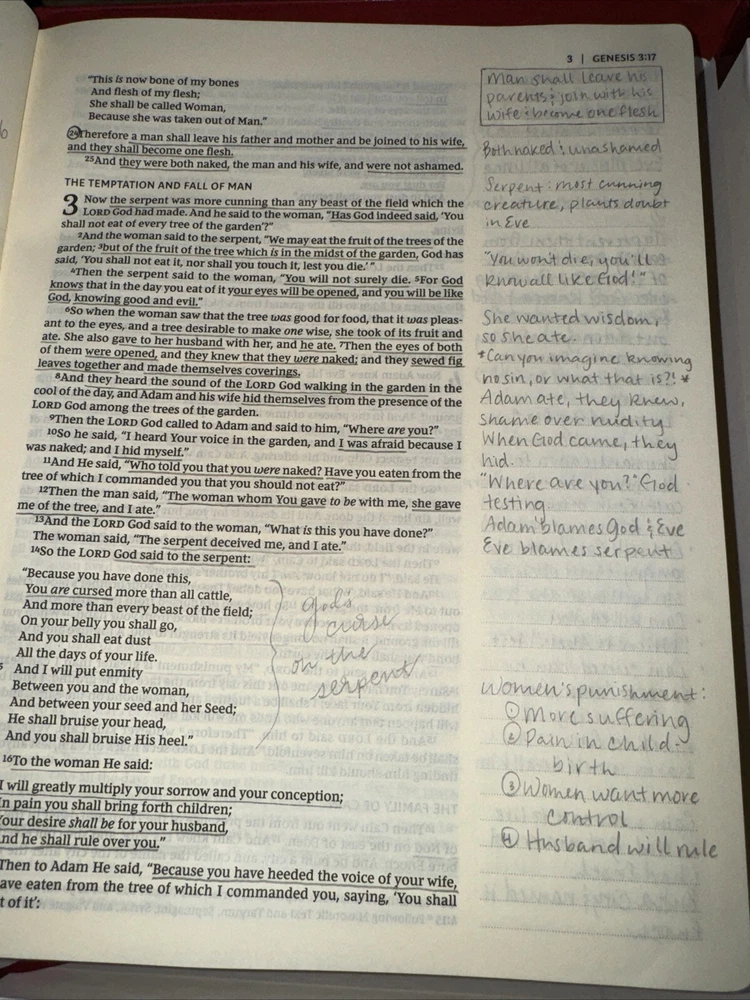 3 | GENESIS 3:17
"This is now bone of my bones
And flesh of my flesh;
She shall be called Woman,
Because she was taken out of Man."
24Therefore a man shall leave his father and mother and be joined to his wife,
and they shall become one flesh.
25And they were both naked, the man and his wife, and were not ashamed.
THE TEMPTATION AND FALL OF MAN
3 Now the serpent was more cunning than any beast of the field which the
LORD God had made. And he said to the woman, "Has God indeed said, 'You
shall not eat of every tree of the garden'?"
2And the woman said to the serpent, "We may eat the fruit of the trees of the
garden; 3but of the fruit of the tree which is in the midst of the garden, God has
said, 'You shall not eat it, nor shall you touch it, lest you die.'"
4Then the serpent said to the woman, "You will not surely die. 5For God
knows that in the day you eat of it your eyes will be opened, and you will be like
God, knowing good and evil."
6So when the woman saw that the tree was good for food, that it was pleas-
ant to the eyes, and a tree desirable to make one wise, she took of its fruit and
ate. She also gave to her husband with her, and he ate. 7Then the eyes of both
of them were opened, and they knew that they were naked; and they sewed fig
leaves together and made themselves coverings.
8And they heard the sound of the LORD God walking in the garden in the
cool of the day, and Adam and his wife hid themselves from the presence of the
LORD God among the trees of the garden.
9Then the LORD God called to Adam and said to him, "Where are you?"
10So he said, "I heard Your voice in the garden, and I was afraid because I
was naked; and I hid myself."
11And He said, "Who told you that you were naked? Have you eaten from the
tree of which I commanded you that you should not eat?"
12Then the man said, "The woman whom You gave to be with me, she gave
me of the tree, and I ate."
13And the LORD God said to the woman, "What is this you have done?"
The woman said, "The serpent deceived me, and I ate."
14So the LORD God said to the serpent:
"Because you have done this,
You are cursed more than all cattle,
And more than every beast of the field;
On your belly you shall go,
And you shall eat dust
All the days of your life.
And I will put enmity
Between you and the woman,
And between your seed and her Seed;
He shall bruise your head,
And you shall bruise His heel."
God's
curse
on the
serpent
16To the woman He said:
I will greatly multiply your sorrow and your conception;
In pain you shall bring forth children;
Your desire shall be for your husband,
And he shall rule over you."
Then to Adam He said, "Because you have heeded the voice of your wife,
ave eaten from the tree of which I commanded you, saying, 'You shall
t of it':
Man shall leave his
parents & join with his
wife & become one flesh
Both naked & unashamed
Serpent: most cunning
creature, plants doubt
in Eve
"You won't die, you'll
know all like God!"
She wanted wisdom,
so she ate.
*Can you imagine knowing
no sin, or what that is?! *
Adam ate, they knew,
shame over nudity
When God came, they
hid.
"Where are you?" God
testing
Adam blames God & Eve
Eve blames serpent
Women's punishment:
① More suffering
② Pain in child-
birth
③ Women want more
control
④ Husband will rule